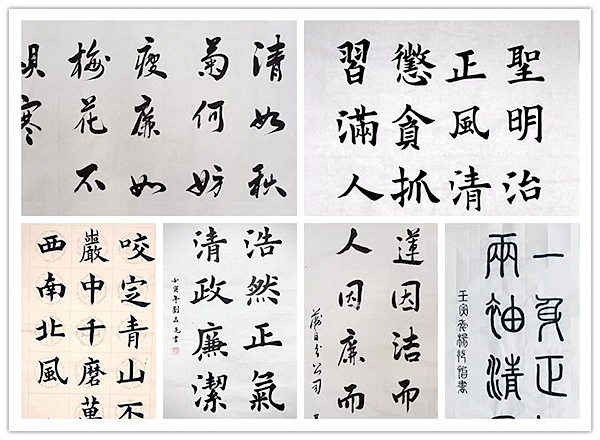 清如秋
菊何妨
瘦廉如
梅花不
寒
聖明治
正風清
懲貪抓
習滿人
咬定青山不
巖中千磨萬
西南北風
浩然正氣
清政廉潔
壬寅年劉
蓮因洁而
人因廉而
分公司
一身正
兩袖清
壬寅